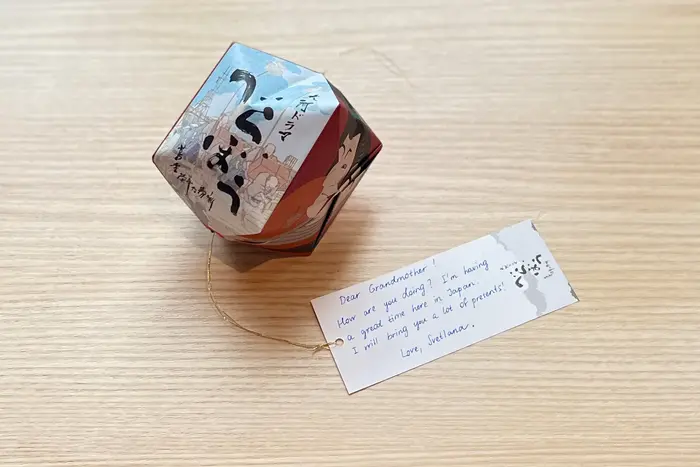 大河ドラマ
べらぼう
Dear Grandmother!
How are you doing? I'm having
a great time here in Japan.
I will bring you a lot of presents!
Love, Svetlana.
べらぼう